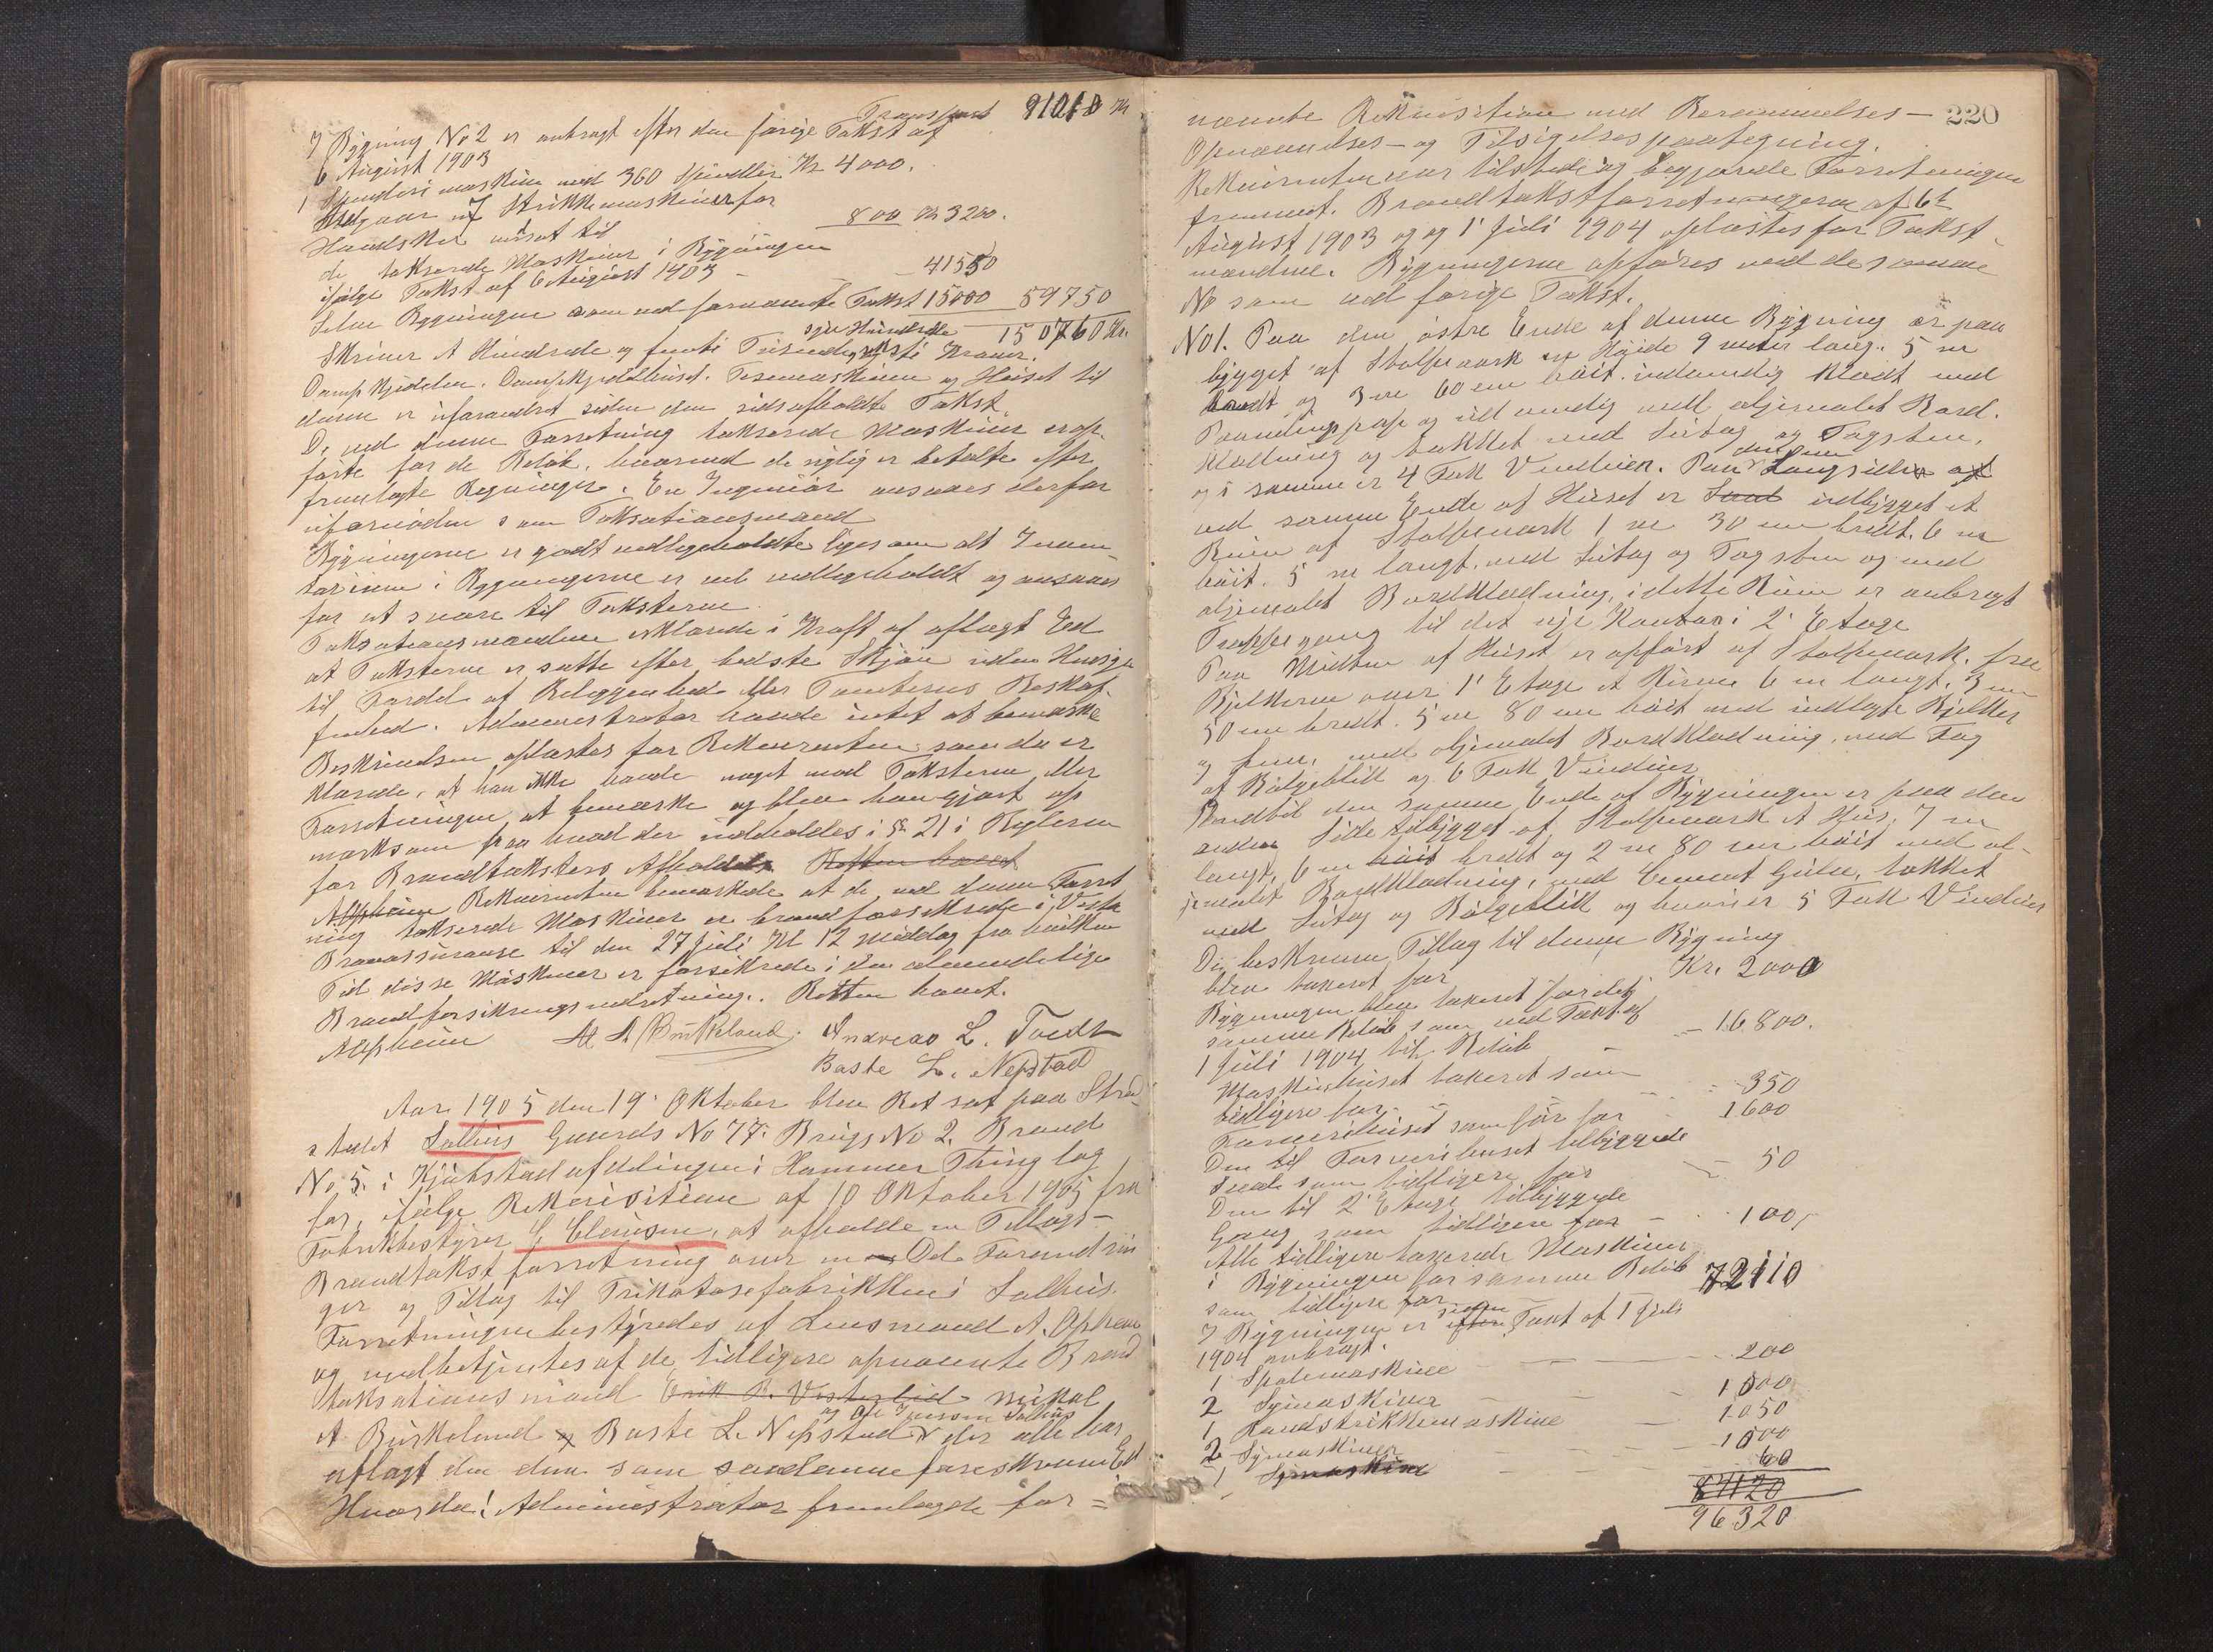 Transport 91010 Kr
I Bygning No 2 er anbragt efter den forrige Takst af
6 August 1903
1 Spinderimaskine med 360 Spindler Kr 4000.
Afgaar 7 Strikkemaskiner for
Handsker ansat til 800 Kr 3200.
de takserede Maskiner i Bygningen
ifølge Takst af 6 August 1903 - - 41550
Selve Bygningen som ved fornævnte Takst 15000 59750
syv Hundrede 150760 Kr.
Skriver Et Hundrede og femti Tusinde og seksti Kroner.
Dampkjedelen. Dampkjedelhuset. Tørremaskinen og Huset til
denne er uforandret siden den sidst afholdte Takst.
De ved denne Forretning takserede Maskiner er op-
førte for de Beløb, hvormed de rigtig er betalte efter
fremlagte Regninger. En Ingeniør ansaaes derfor
ufornøden som Taksationsmand
Bygningerne er godt vedligeholdte ligesom alt Inven-
tarium i Bygningerne er vel vedligeholdt og ansaaes
for at svare til Taksterne.
Taksationsmændene erklærede i Kraft af aflagt Ed
at Taksterne er satte efter bedste Skjøn uden Hensyn
til Fordel af Beliggenhed eller Tomternes Beskaf-
fenhed. Administrator havde intet at bemærke
Beskrivelsen oplæstes for Rekvirenten som da er
klærede, at han ikke havde noget mod Taksterne eller
Forretningen at bemærke og blev han gjort op
mærksom paa hvad der indeholdes i § 21 i Reglerne
for Brandtaksters Afholdelse Retten hævet
Alpheim Rekvirenten bemærkede at de ved denne Forret
ning takserede Maskiner er brandforsikrede i Vesta
Brandassurance til den 27 Juli Kl 12 Middag fra hvilken
Tid disse Maskiner er forsikrede i den almindelige
Brandforsikringsindretning. Retten hævet.
Alpheim A A Birkeland Andreas L. Tvedt
Baste L. Nepstad
Aar 1905 den 19 Oktober blev Ret sat paa Strand
stedet Salhus Gaards No 77. Brugs No 2. Brand
No 5. i Kjøbstadafdelingen i Hammer Thinglag
for, ifølge Rekvisition af 10 Oktober 1905 fra
Fabrikbestyrer C Clausen, at afholde en Tillags-
Brandtakst forretning over en Del Forandrin
ger og Tillag til Trikotasefabrikken i Salhus.
Forretningen bestyredes af Lensmand A. Alpheim
og medbetjentes af de tidligere opnævnte Brand
taksationsmænd Erik B. Vesterlid Mikal
og Ole Jensen Salhus
A Birkeland og Baste L. Nepstad der alle har
aflagt den dem som saadanne foreskrevne Ed
Hvorda! Administrator fremlagde før =
220
nævnte Rekvisition med Berammelses-
Opnævnelses- og Tilsigelsespaategning.
Rekvirenten var tilstede og begjærede Forretningen
fremmet. Brandtakstforretningerne af 6te
August 1903 og af 1 Juli 1904 oplæstes for Takst-
mændene. Bygningerne opføres ved de samme
No som ved forrige Takst.
No 1. Paa den østre Ende af denne Bygning er paa
bygget af Stolpeværk en Høide 9 meter lang. 5 m
bredt og 3 m 60 cm høit. indvendig klædt med
Paneling pap og udvendig med oljemalet Bord.
klædning og takket med Sutag og Tagsten,
og i samme er 4 Fak Vinduer. Paa den ene Langside af
ved samme Ende af Huset er Saal udbygget et
Rum af Stolpeværk 1 m 30 cm bredt. 6 m
høit. 5 m langt. med Sutag og Tagsten og med
oljemalet Bordklædning, i dette Rum er anbragt
Trappegang til det nye Kontor i 2 Etage
Paa Midten af Huset er opført af Stolpeværk. fra
Bjelkerne over 1 Etage et Rum 6 m langt. 3 m
50 cm bredt. 5 m 80 cm høit med indlagte Bjelker
og
med oljemalet Bordklædning, med Tag
af Bølgeblik og 6 Fak Vinduer
Nordtil den samme Ende af Bygningen er paa den
anden Side tilbygget af Stolpeværk et Hus, 7 m
langt, 6 m høit bredt og 2 m 80 cm høit med ol-
jemalet Bordklædning, med Cement Gulv, takket
med Sutag og Bølgeblik og hvori er 5 Fak Vinduer
De beskrevne Tillag til denne Bygning
blev takseret for Kr. 2000
Bygningen blev takseret for det
samme Beløb som ved Takst af
1 Juli 1904 til Beløb - 16800.
Maskinhuset takseret som
tidligere for - - 350
Farverihuset som før for - - 1600
Den til Farverihuset tilbyggede
som tidligere for - 50
Den til 2 Etage tilbyggede
Gang som tidligere for - - 100,
Alle tidligere takserede Maskiner
i Bygningen for samme Beløb
som tidligere for 72110
I Bygningen er siden efter Takst af 1 Juli
1904 anbragt.
1 Spolemaskine - - - 200
2 Symaskiner - - - 1000
1 Randstrikkemaskine - 1050
2 Symaskiner - - - 1000
1 Symaskine - - - 60
87120
96320